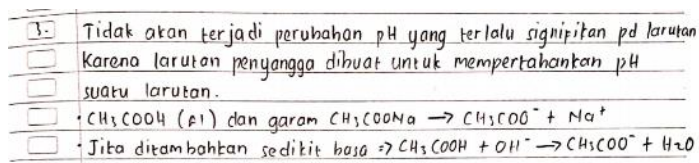 3. Tidak akan terjadi perubahan pH yang terlalu signifikan pd larutan
Karena larutan penyangga dibuat untuk mempertahankan pH
suatu larutan.
• CH₃COOH (al) dan garam CH₃COONa → CH₃COO⁻ + Na⁺
• Jika ditambahkan sedikit basa => CH₃COOH + OH⁻ → CH₃COO⁻ + H₂O